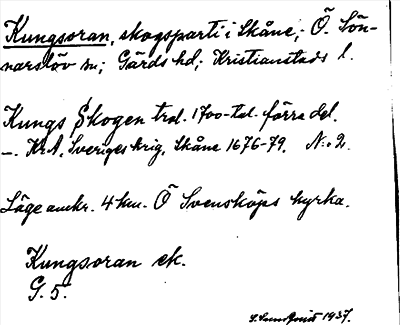 Kungsoran, skogsparti i Skåne; Ö. Sön-
narslöv sn; Gärds hd; Kristianstads l.
Kungs Skogen trol. 1700-tal. förra del.
–. KrA, Sveriges krig, Skåne 1676-79. N:o 2.
Läge omkr. 4 km. Ö Svensköps kyrka.
Kungsoran ek.
G. 5.
S. Sundquist 1937.